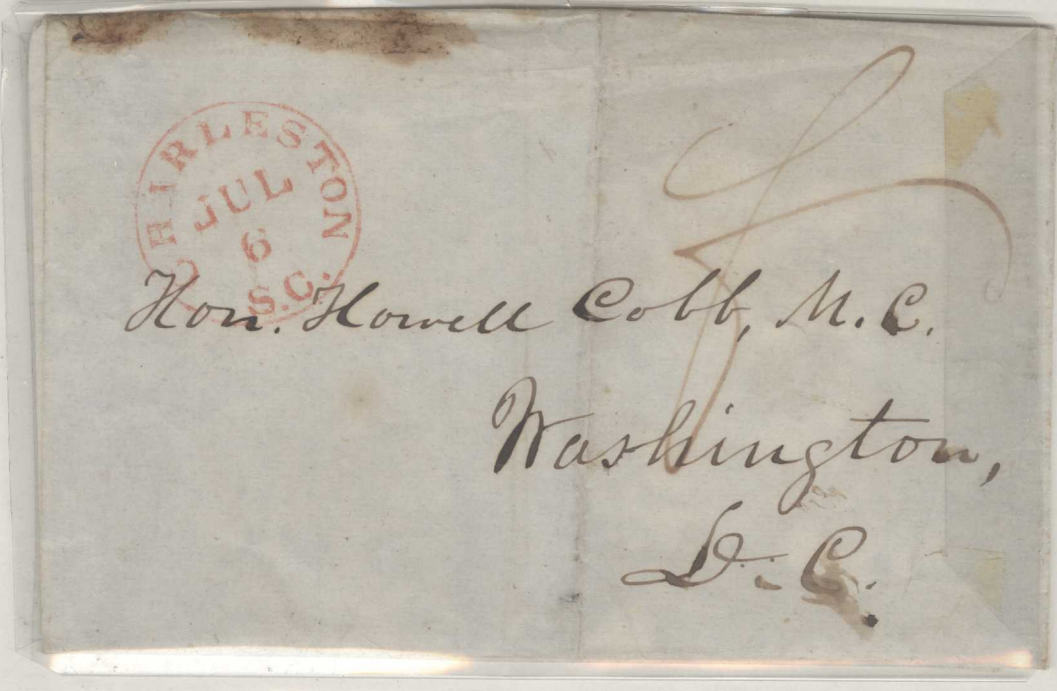 CHARLESTON
JUL
6
S.C.
Hon. Howell Cobb, M. C.
Washington,
D. C.